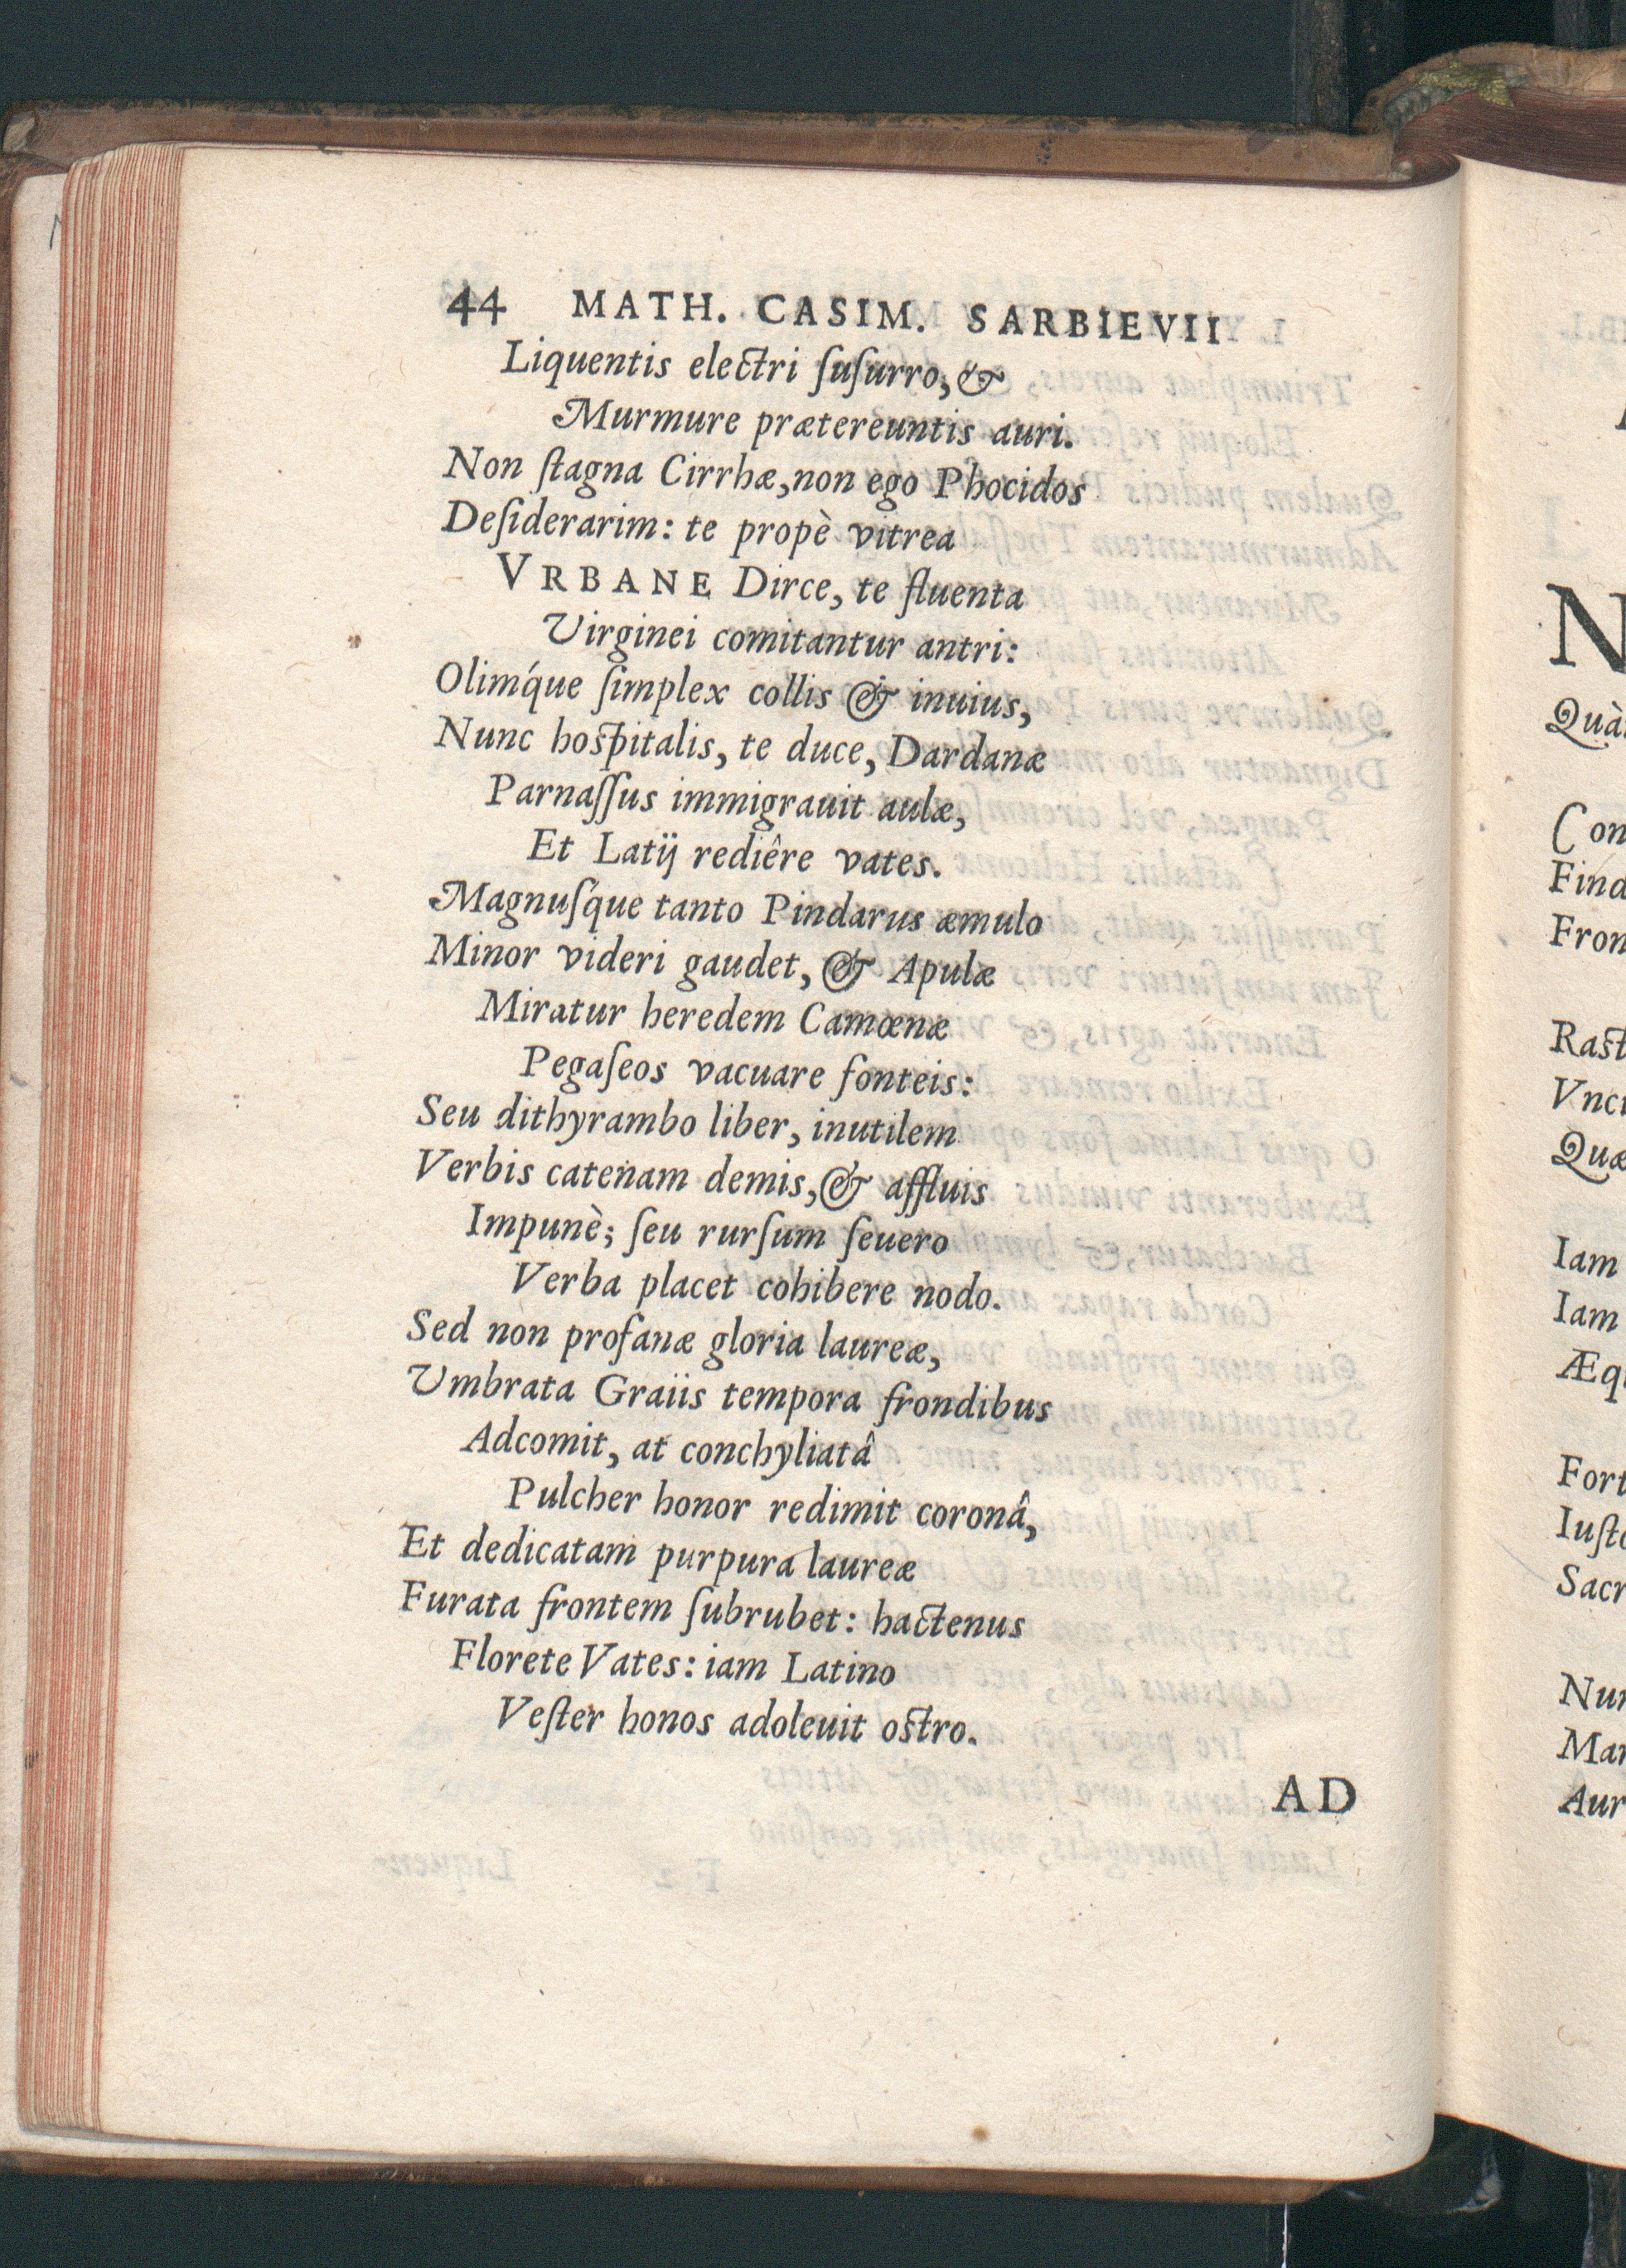 44 MATH. CASIM. SARBIEVII
Liquentis electri ſuſurro, &
Murmure prætereuntis auri.
Non ſtagna Cirrhæ, non ego Phocidos
Deſiderarim: te propè vitrea
VRBANE Dirce, te fluenta
Virginei comitantur antri:
Olimq́ue ſimplex collis & inuius,
Nunc hoſpitalis, te duce, Dardanæ
Parnaſſus immigrauit aulæ,
Et Latij rediêre vates.
Magnuſq́ue tanto Pindarus æmulo
Minor videri gaudet, & Apulæ
Miratur heredem Camœnæ
Pegaſeos vacuare fonteis:
Seu dithyrambo liber, inutilem
Verbis catenam demis, & affluis
Impunè; ſeu rurſum ſeuero
Verba placet cohibere nodo.
Sed non profanæ gloria laureæ,
Umbrata Graiis tempora frondibus
Adcomit, at conchyliatâ
Pulcher honor redimit coronâ,
Et dedicatam purpura laureæ
Furata frontem ſubrubet: hactenus
Florete Vates: iam Latino
Veſter honos adoleuit oſtro.
AD
N
Quà
Con
Find
Fron
Raſt
Vnci
Quæ
Iam
Iam
Æq
Fort
Iuſt
Sacr
Nun
Mar
Aur